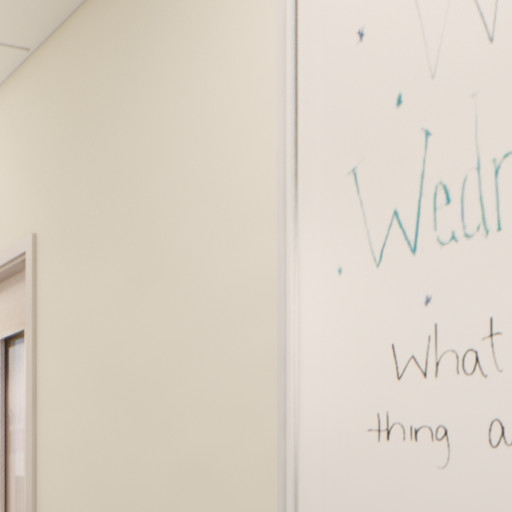 W
Wedn
what
thing a